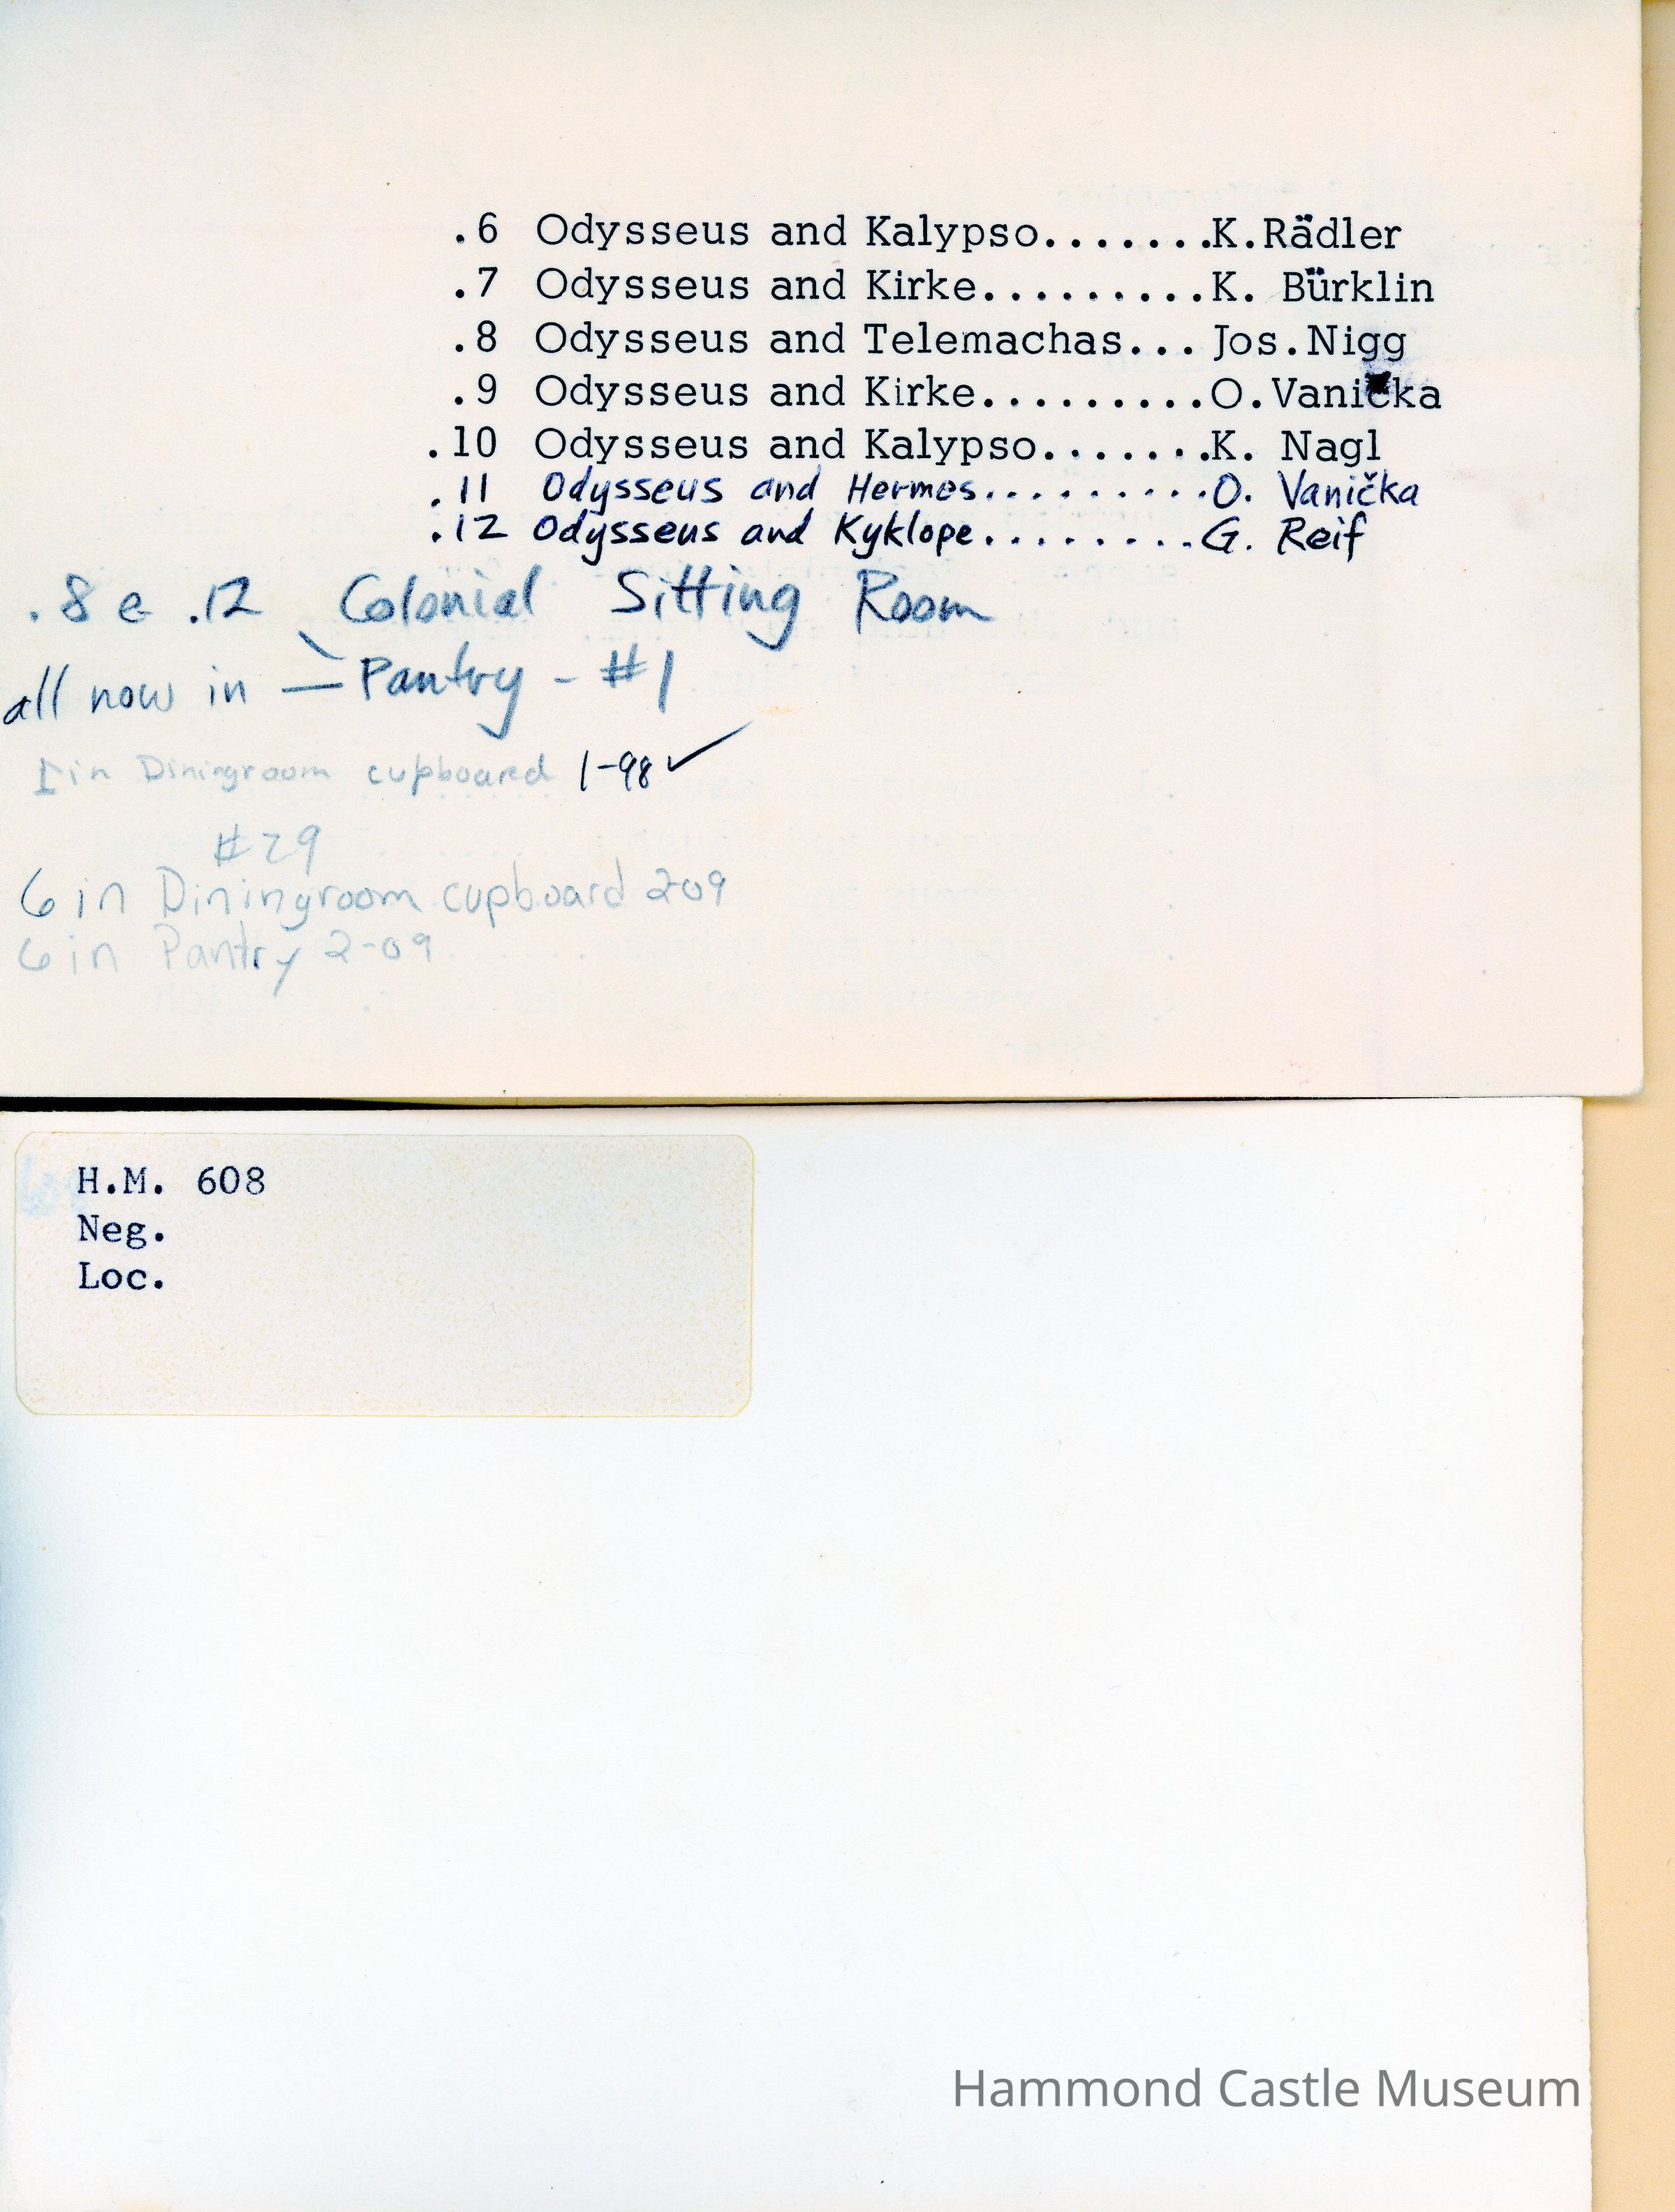 .6 Odysseus and Kalypso.......K.Rädler
.7 Odysseus and Kirke.........K. Bürklin
.8 Odysseus and Telemachas... Jos.Nigg
.9 Odysseus and Kirke.........O.Vanička
.10 Odysseus and Kalypso.......K. Nagl
.11 Odysseus and Hermes..........O. Vanička
.12 Odysseus and Kyklope.........G. Reif
.8 e .12 Colonial Sitting Room
all now in — Pantry - #1
1 in Diningroom cupboard 1-98 ✓
#29
6 in Diningroom cupboard 209
6 in Pantry 2-09
H.M. 608
Neg.
Loc.
Hammond Castle Museum